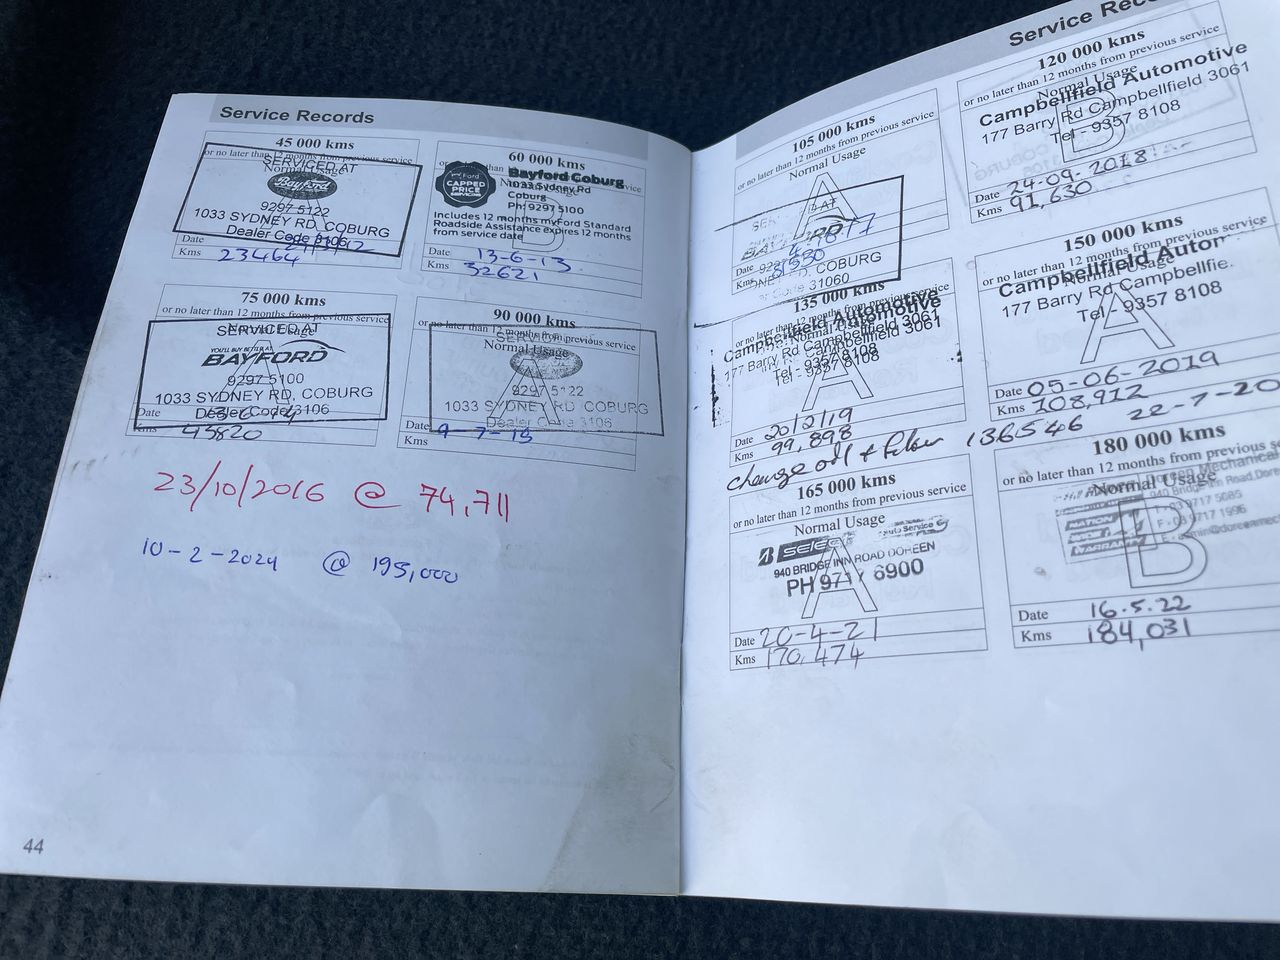 Service Records
45 000 kms
or no later than 12 months from previous service
SERVICED AT
Normal Usage
Bayford
9297 5122
1033 SYDNEY RD, COBURG
Dealer Code 3106
Date
Kms 23464
60 000 kms
Ford
CAPPED
PRICE
SERVICING
Bayford Coburg
1033 Sydney Rd
Coburg
Ph: 9297 5100
Includes 12 months myFord Standard
Roadside Assistance expires 12 months
from service date
B
Date 13-6-13
Kms 32621
75 000 kms
or no later than 12 months from previous service
SERVICED AT
YOU'LL BUY BETTER AT
BAYFORD
9297 5100
1033 SYDNEY RD, COBURG
Dealer Code 3106
Date
Kms 43820
90 000 kms
or no later than 12 months from previous service
Normal Usage
A
9297 5122
1033 SYDNEY RD COBURG
Dealer Code 3106
Date 9-7-15
Kms
23/10/2016 @ 74,711
10-2-2024 @ 195,000
44
Service
105 000 kms
or no later than 12 months from previous service
Normal Usage
A
COBURG
Code 31060
Date
Kms
120 000 kms
or no later than 12 months from previous service
Normal Usage
Campbellfield Automotive
177 Barry Rd Campbellfield 3061
Tel - 9357 8108
B
Date 24-09-2018
Kms 91,630
135 000 kms
or no later than 12 months from previous service
Campbellfield Automotive
177 Barry Rd Campbellfield 3061
Tel - 9357 8108
A
Date 20/2/19
Kms 99,898
change oil + filter 136546 22-7-20
150 000 kms
or no later than 12 months from previous service
Normal Usage
Campbellfield Autor
177 Barry Rd Campbellfie.
Tel - 9357 8108
A
Date 05-06-2019
Kms 108,912
165 000 kms
or no later than 12 months from previous service
Normal Usage
SELECT
Auto Service
940 BRIDGE INN ROAD DOREEN
PH 9717 6900
A
Date 20-4-21
Kms 170,474
180 000 kms
or no later than 12 months from previous service
Normal Usage
Doreen Mechanical
940 Bridge Inn Road, Dor
T - 03 9717 5085
F - 03 9717 1996
NATION
WIDE
WARRANTY
B
Date 16.5.22
Kms 184,031